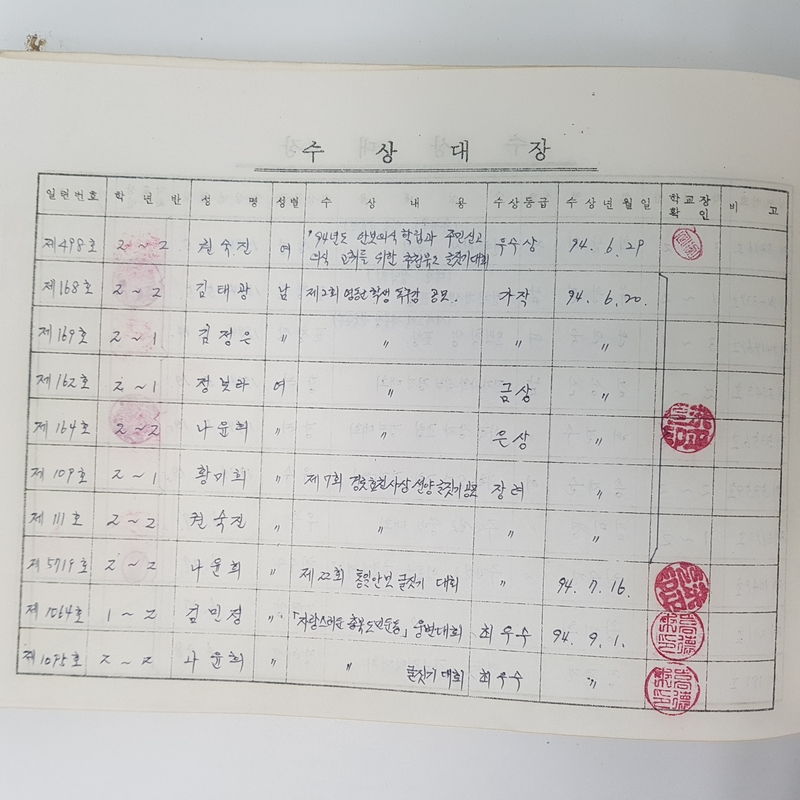 수 상 대 장
일련번호 학년반 성명 성별 수상내용 수상등급 수상년월일 학교장확인 비고
제498호 2~2 권숙진 여 '94년도 안보의식 학립과 주민신고 우수상 94. 6. 29
의식 고취를 위한 충청북도 글짓기대회
제168호 2~2 김태광 남 제2회 영동 학생 독후감 공모. 가작 94. 6. 20.
제169호 2~1 김정은 〃 〃 〃 〃
제162호 2~1 정보라 여 〃 금상 〃
제164호 2~2 나윤희 〃 〃 은상 〃
제109호 2~1 황미희 〃 제7회 경로효친사상 선양 글짓기공모 장려 〃
제111호 2~2 권숙진 〃 〃 〃 〃
제5719호 2~2 나윤희 〃 제22회 통일안보 글짓기 대회 〃 94. 7. 16.
제1064호 1~2 김민정 〃 「자랑스러운 충북도민운동」 웅변대회 최우수 94. 9. 1.
제1075호 2~2 나윤희 〃 〃 글짓기 대회 최우수 〃